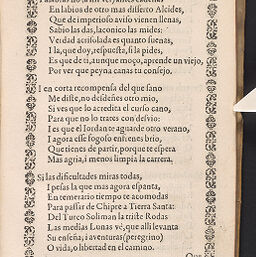 En labios de otro mas disferto Alcides,
Que de imperioso aviso vienen llenas,
Sabio las das, laconico las mides:
Verdad acrisolada es quanto suenas,
I la, que doy, respuesta, si la pides,
Es que de ti, aunque moço, aprende un viejo,
Por ver que peyna canas tu consejo.
I en corta recompensa del que sano
Me diste, no desdeñes otro mio,
Si ves que lo acredita el curso cano,
Para que no lo trates con desvio:
I es que el Iordan te aguarde otro verano,
I agora esse fogoso enfrenes brio,
Que tienes de partir, porque te espera
Mas agria, i menos limpia la carrera.
Si las dificultades miras todas,
I pesas la que mas agora espanta,
En temerario tiempo te acomodas
Para passar de Chipre a Tierra Santa:
Del Turco Soliman la triste Rodas
Las medias Lunas vè, que alli levanta
Su enseña, i aventuras (peregrino)
O vida, o libertad en el camino.
Que